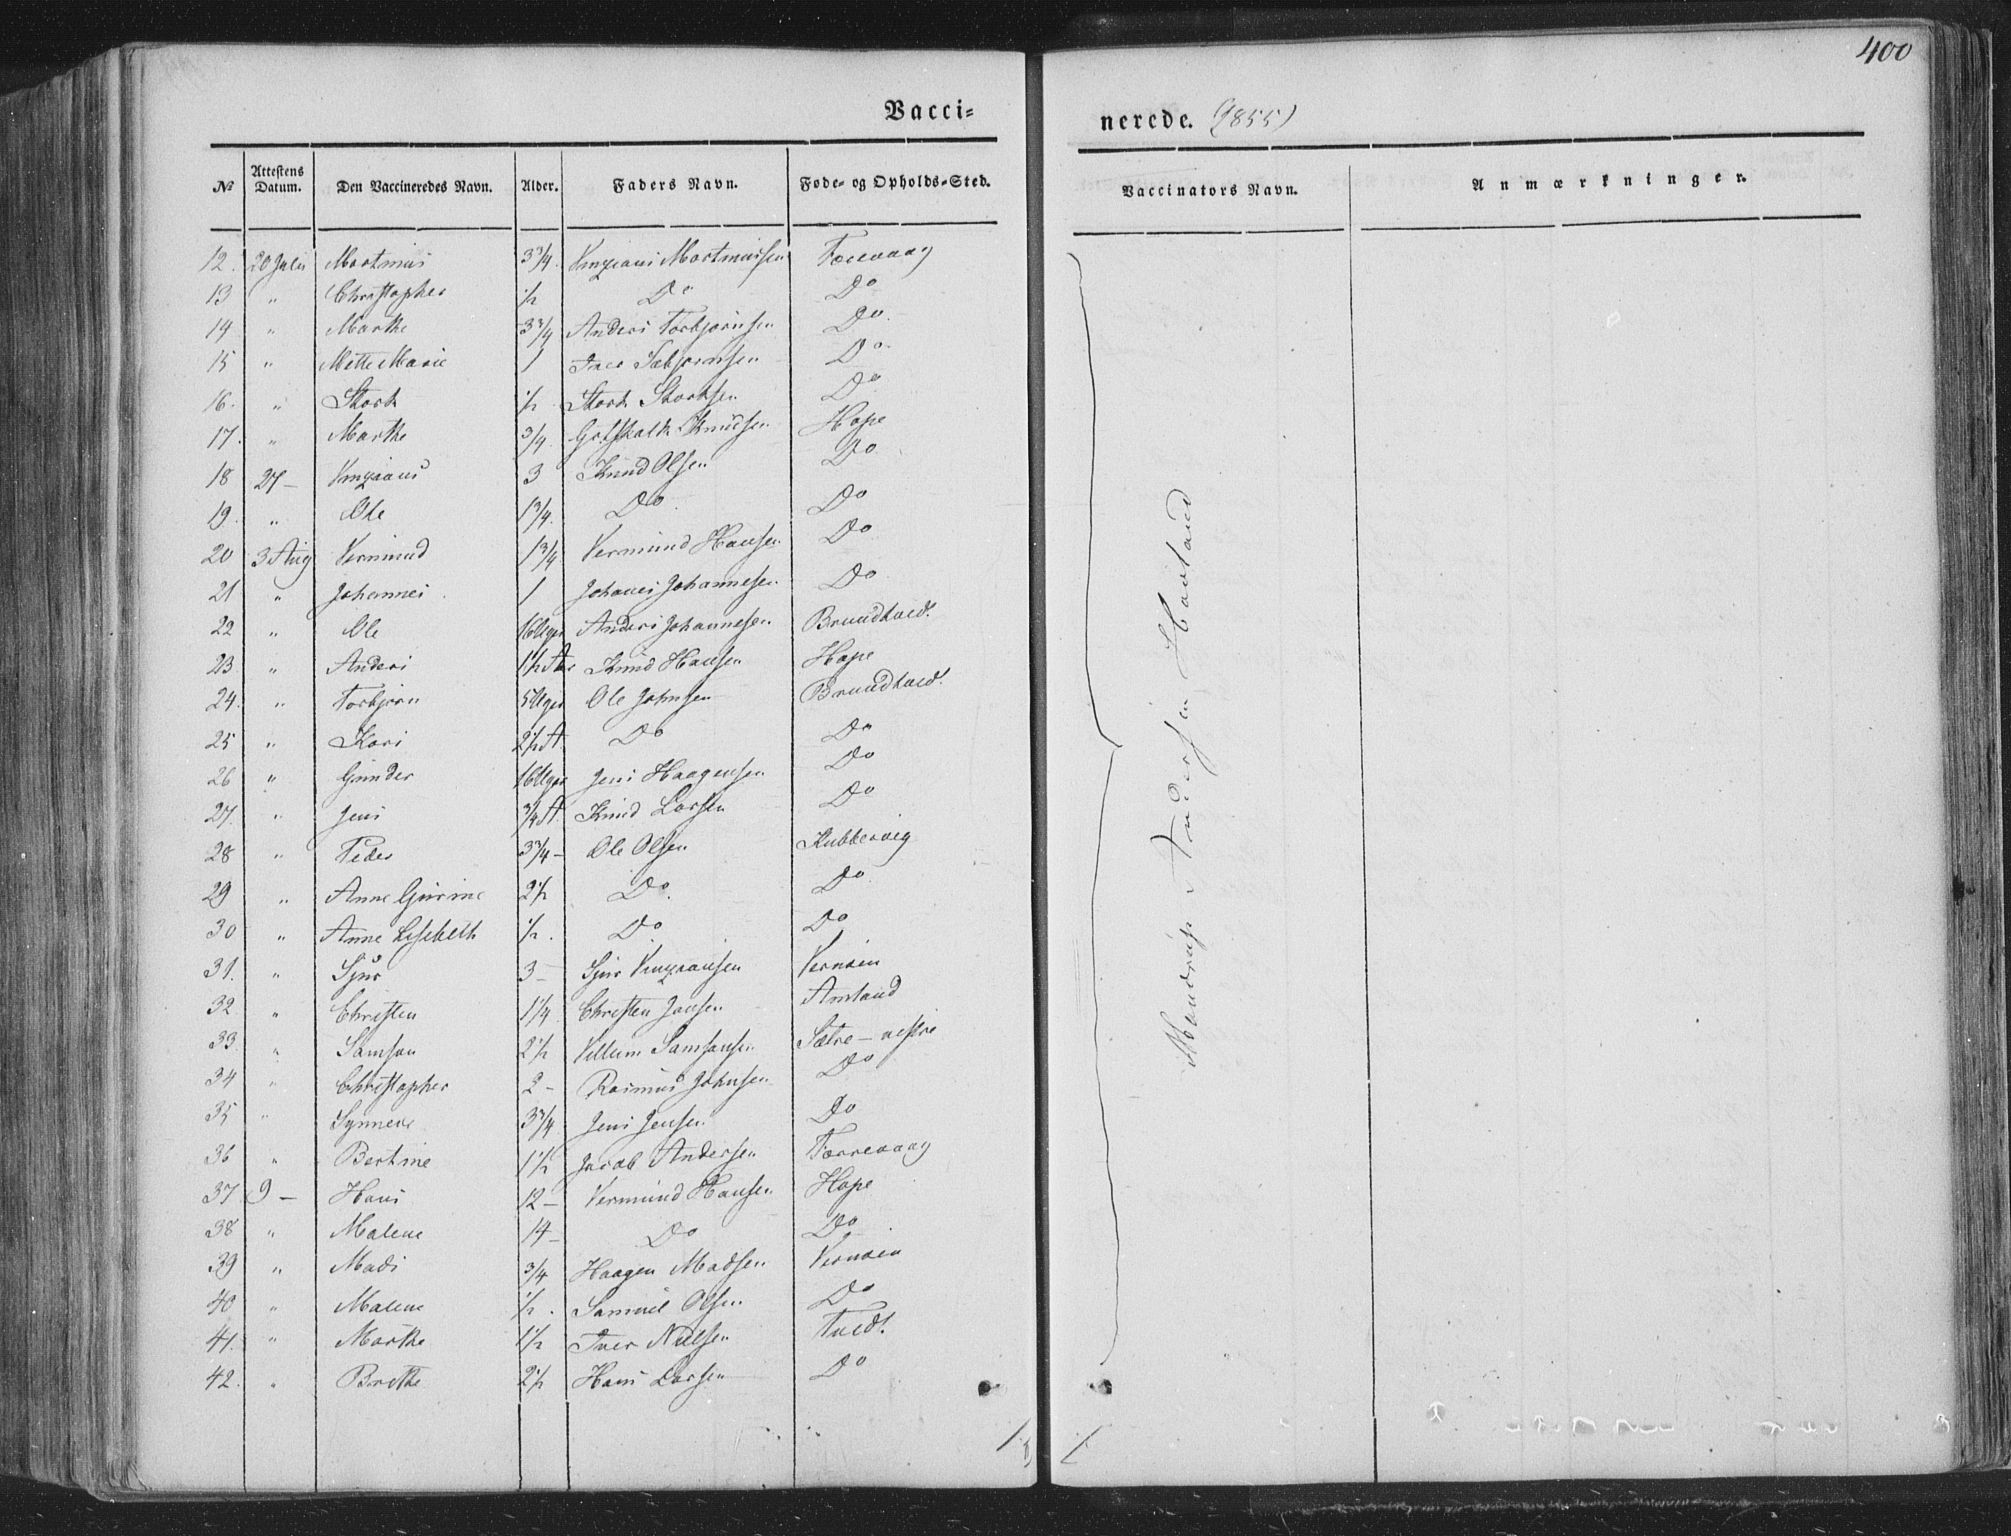 400
Vacci- nerede. (1855)
No Attestens Datum. Den Vaccineredes Navn. Alder. Faders Navn. Føde- og Opholds-Sted. Vaccinators Navn. Anmærkninger.
12. 20 Juli Mortinus 3 3/4. Mortinussen
13 " Christopher 1/2 Do Do
14. " Marthe 3 3/4 Anders Torbjørnsen Do
15 " Mette Marie 1 Do
16. " Stork 1/2 Stork Storksen Do
17. " Marthe 3/4. Gotskalk Knudsen Hope
18 27 — 3 Knud Olsen Do
19. " Ole 1 3/4. Do Do
20 3 Aug Vermund 1 3/4 Vermund Hansen Do
21 " Johannes 1 Johanes Johannesen Do
22 " Ole 16 Uger Anders Johannesen
23 " Anders 1 1/2 Aar Knud Hansen Hope
24. " Torbjørn 5 Uger Ole Johnsen
25 " Kari 2 1/2 A. Do Do
26 " Gunder 16 Uger Jens Haagensen Do
27. " Jens 3/4 A. Knud Larsen Do
28 " Peder 3 3/4 — Ole Olsen Kubbervig
29 " Anne Gurine 2 1/2 Do. Do
30 " Anne Lisebeth 1/2. Do Do
31. " Sjur 3 — Sjur
32. " Christen 1 1/4 Christen Jansen Amland
33 " Samson 2 1/2 Villum Samsonsen Sætre — vestre
34 " Christopher 2 — Rasmus Johnsen Do
35 " Synneve 3 3/4 Jens Jensen Do
36 " Bertine 1 1/2 Jacob Andersen Førrevaag
37 9 — Hans 12 — Vermund Hansen Hope
38 " Malene 14 — Do Do
39 " Mads 3/4 Haagen Madsen
40 " Malene 1/2. Samuel Olsen Do
41. " Marthe 1 1/2 Iver Nielsen Tvedt.
42. " Brithe 2 1/2 Hans Larsen Do
Mandrup Andersen Hovland